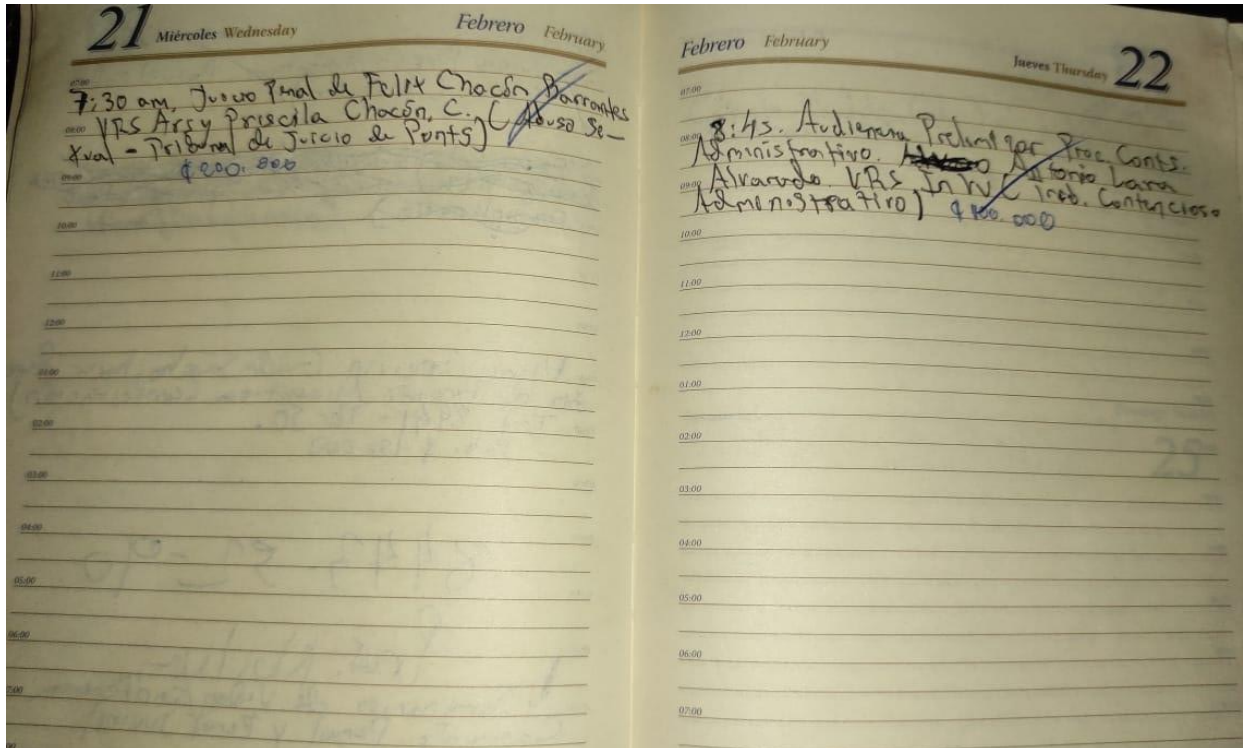 21 Miércoles Wednesday Febrero February
07:00
7:30 am, Juicio Penal de Felix Chacón Barrantes
08:00 VRS Arsy Priscila Chacón, C. (Abuso Se-
xual - Tribunal de Juicio de Punts)
09:00 ₡200.000
10:00
11:00
12:00
01:00
02:00
03:00
04:00
05:00
06:00
Febrero February Jueves Thursday 22
07:00
08:00 8:45. Audiencia Preliminar Proc. Conts.
Administrativo. Antonio Lara
09:00 Alvarado VRS (Trib. Contencioso
Administrativo) ₡100.000
10:00
11:00
12:00
01:00
02:00
03:00
04:00
05:00
06:00
07:00